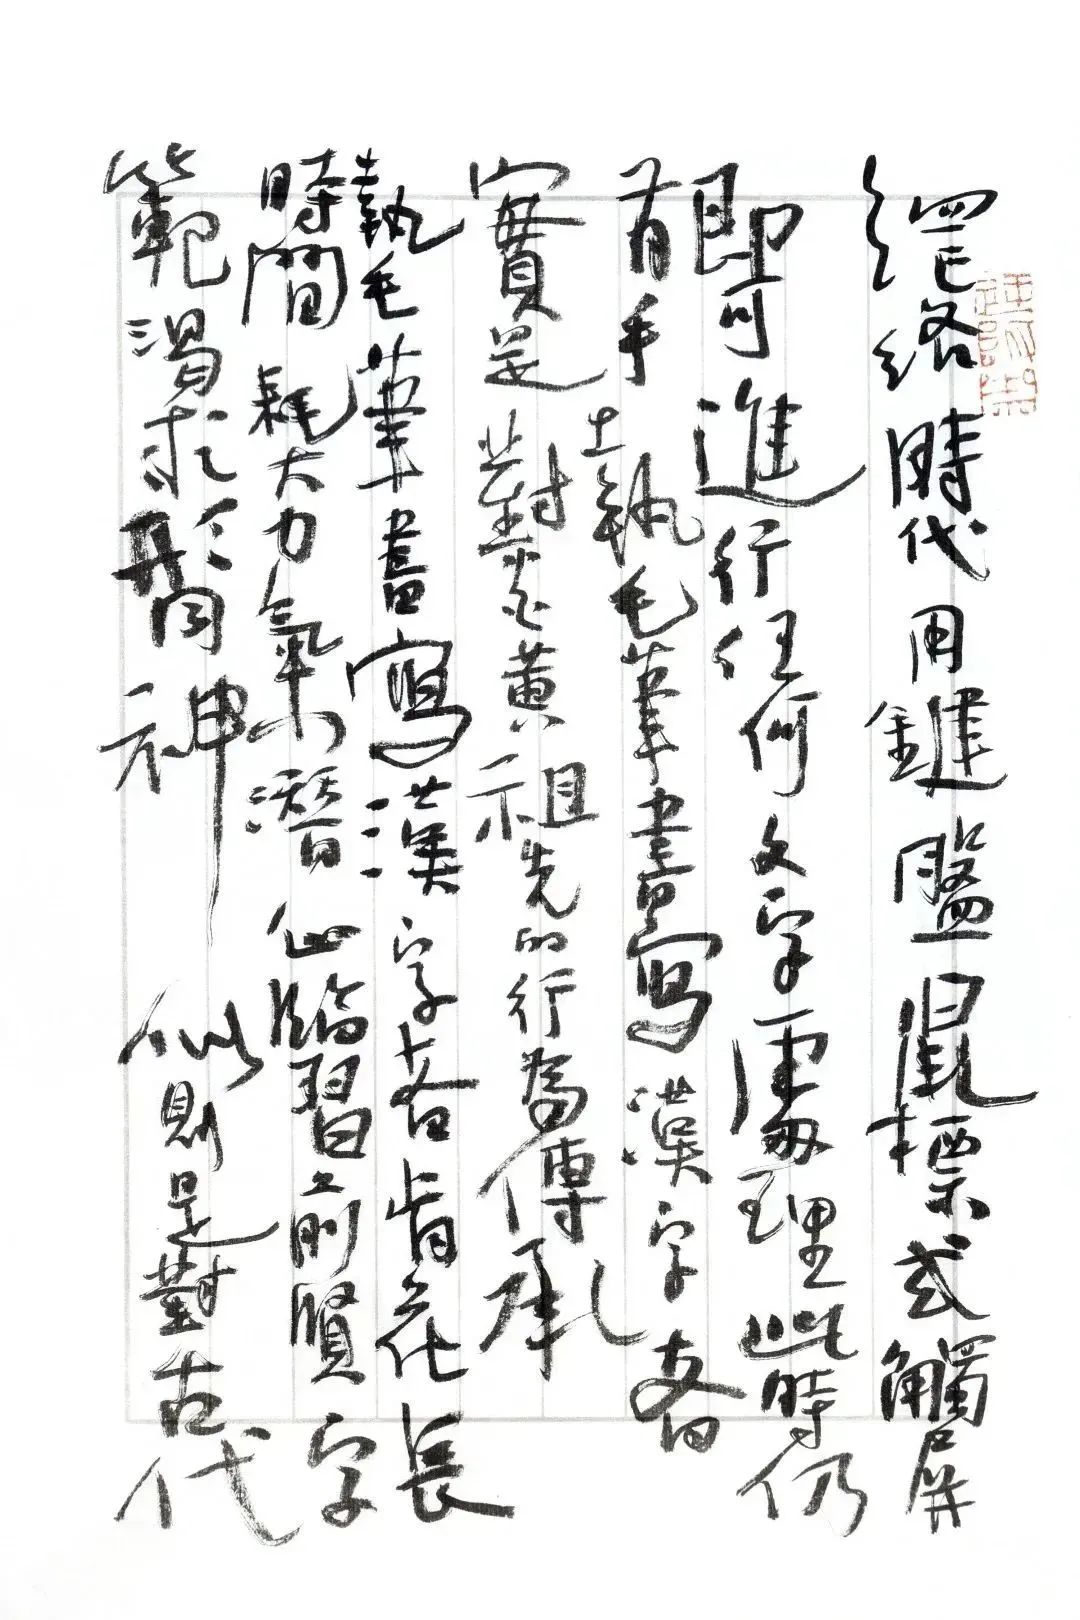 網絡時代用鍵盤鼠標或觸屏
即可進行任何文字處理此時仍
有手執毛筆書寫漢字者
實是對炎黃祖先的行為傳承
執毛筆書寫漢字者肯花長
時間耗大力氣潛心臨習前賢字
範渴求神似則是對古代